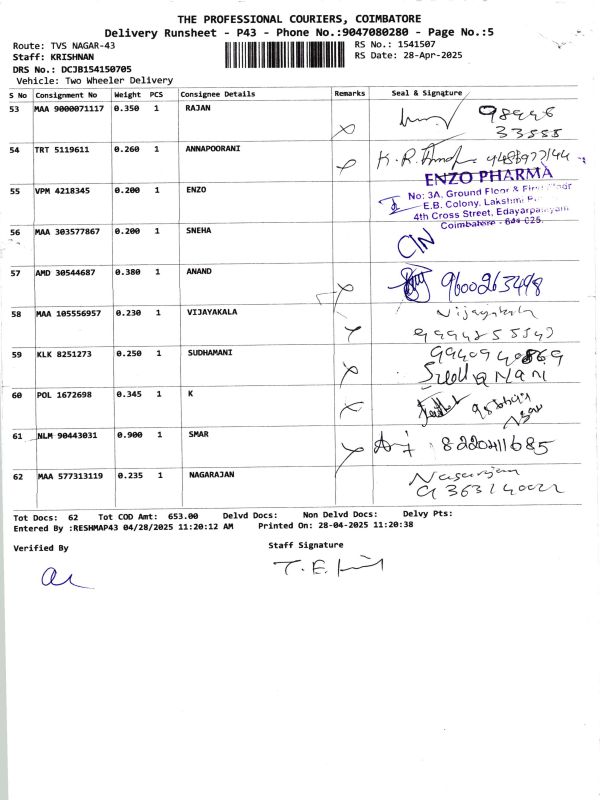 THE PROFESSIONAL COURIERS, COIMBATORE
Delivery Runsheet - P43 - Phone No.:9047080280 - Page No.:5
Route: TVS NAGAR-43 RS No.: 1541507
Staff: KRISHNAN RS Date: 28-Apr-2025
DRS No.: DCJB154150705
Vehicle: Two Wheeler Delivery
S No Consignment No Weight PCS Consignee Details Remarks Seal & Signature
53 MAA 9000071117 0.350 1 RAJAN
33555
54 TRT 5119611 0.260 1 ANNAPOORANI
ENZO PHARMA
55 VPM 4218345 0.200 1 ENZO
No: 3A, Ground Floor & First Floor
E.B. Colony, Lakshmi
4th Cross Street, Edayarpalayam
Coimbatore - 641 025.
56 MAA 303577867 0.200 1 SNEHA
57 AMD 30544687 0.380 1 ANAND 9600263498
58 MAA 105556957 0.230 1 VIJAYAKALA Vijayakala
59 KLK 8251273 0.250 1 SUDHAMANI
60 POL 1672698 0.345 1 K
61 NLM 90443031 0.900 1 SMAR 8220411685
62 MAA 577313119 0.235 1 NAGARAJAN Nagarajan
Tot Docs: 62 Tot COD Amt: 653.00 Delvd Docs: Non Delvd Docs: Delvy Pts:
Entered By :RESHMAP43 04/28/2025 11:20:12 AM Printed On: 28-04-2025 11:20:38
Verified By Staff Signature